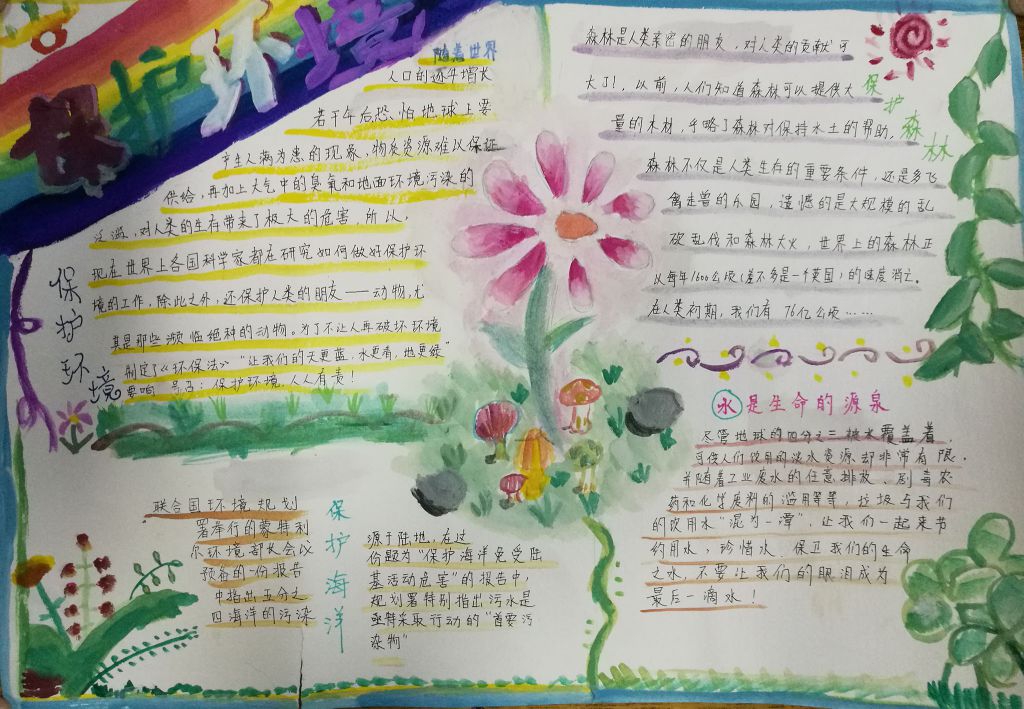 保护环境
随着世界
人口的逐年增长
若干年后恐怕地球上要
产生人满为患的现象,物质资源难以保证
供给,再加上大气中的臭氧和地面环境污染的
泛滥,对人类的生存带来了极大的危害,所以,
现在世界上各国科学家都在研究如何做好保护环
境的工作,除此之外,还保护人类的朋友——动物,尤
其是那些濒临绝种的动物。为了不让人再破坏环境
制定了《环保法》“让我们的天更蓝,水更有,地更绿”
要响 号召:保护环境,人人有责!
保护环境
森林是人类亲密的朋友,对人类的贡献可
大了!,以前,人们知道森林可以提供大
量的木材,乎略了森林对保持水土的帮助,
森林不仅是人类生存的重要条件,还是多飞
禽走兽的乐园,遗憾的是大规模的乱
砍乱伐和森林大火,世界上的森林正
以每年1600公顷(差不多是一个英国)的速度消亡。
在人类初期,我们有76亿公顷……
保护森林
水是生命的源泉
尽管地球的四分之三被水覆盖着,
可供人们饮用的淡水资源却非常有限。
并随着工业废水的任意排放、剧毒农
药和化学废料的滥用等等,垃圾与我们
的饮用水“混为一潭”,让我们一起来节
约用水,珍惜水、保卫我们的生命
之水,不要让我们的眼泪成为
最后一滴水!
联合国环境规划
署举行的蒙特利
尔环境部长会议
预备的一份报告
中指出五分之
四海洋的污染
保护海洋
源于陆地,在过
份题为“保护海洋免受陆
基活动危害”的报告中,
规划署特别指出污水是
亟待采取行动的“首要污
染物”